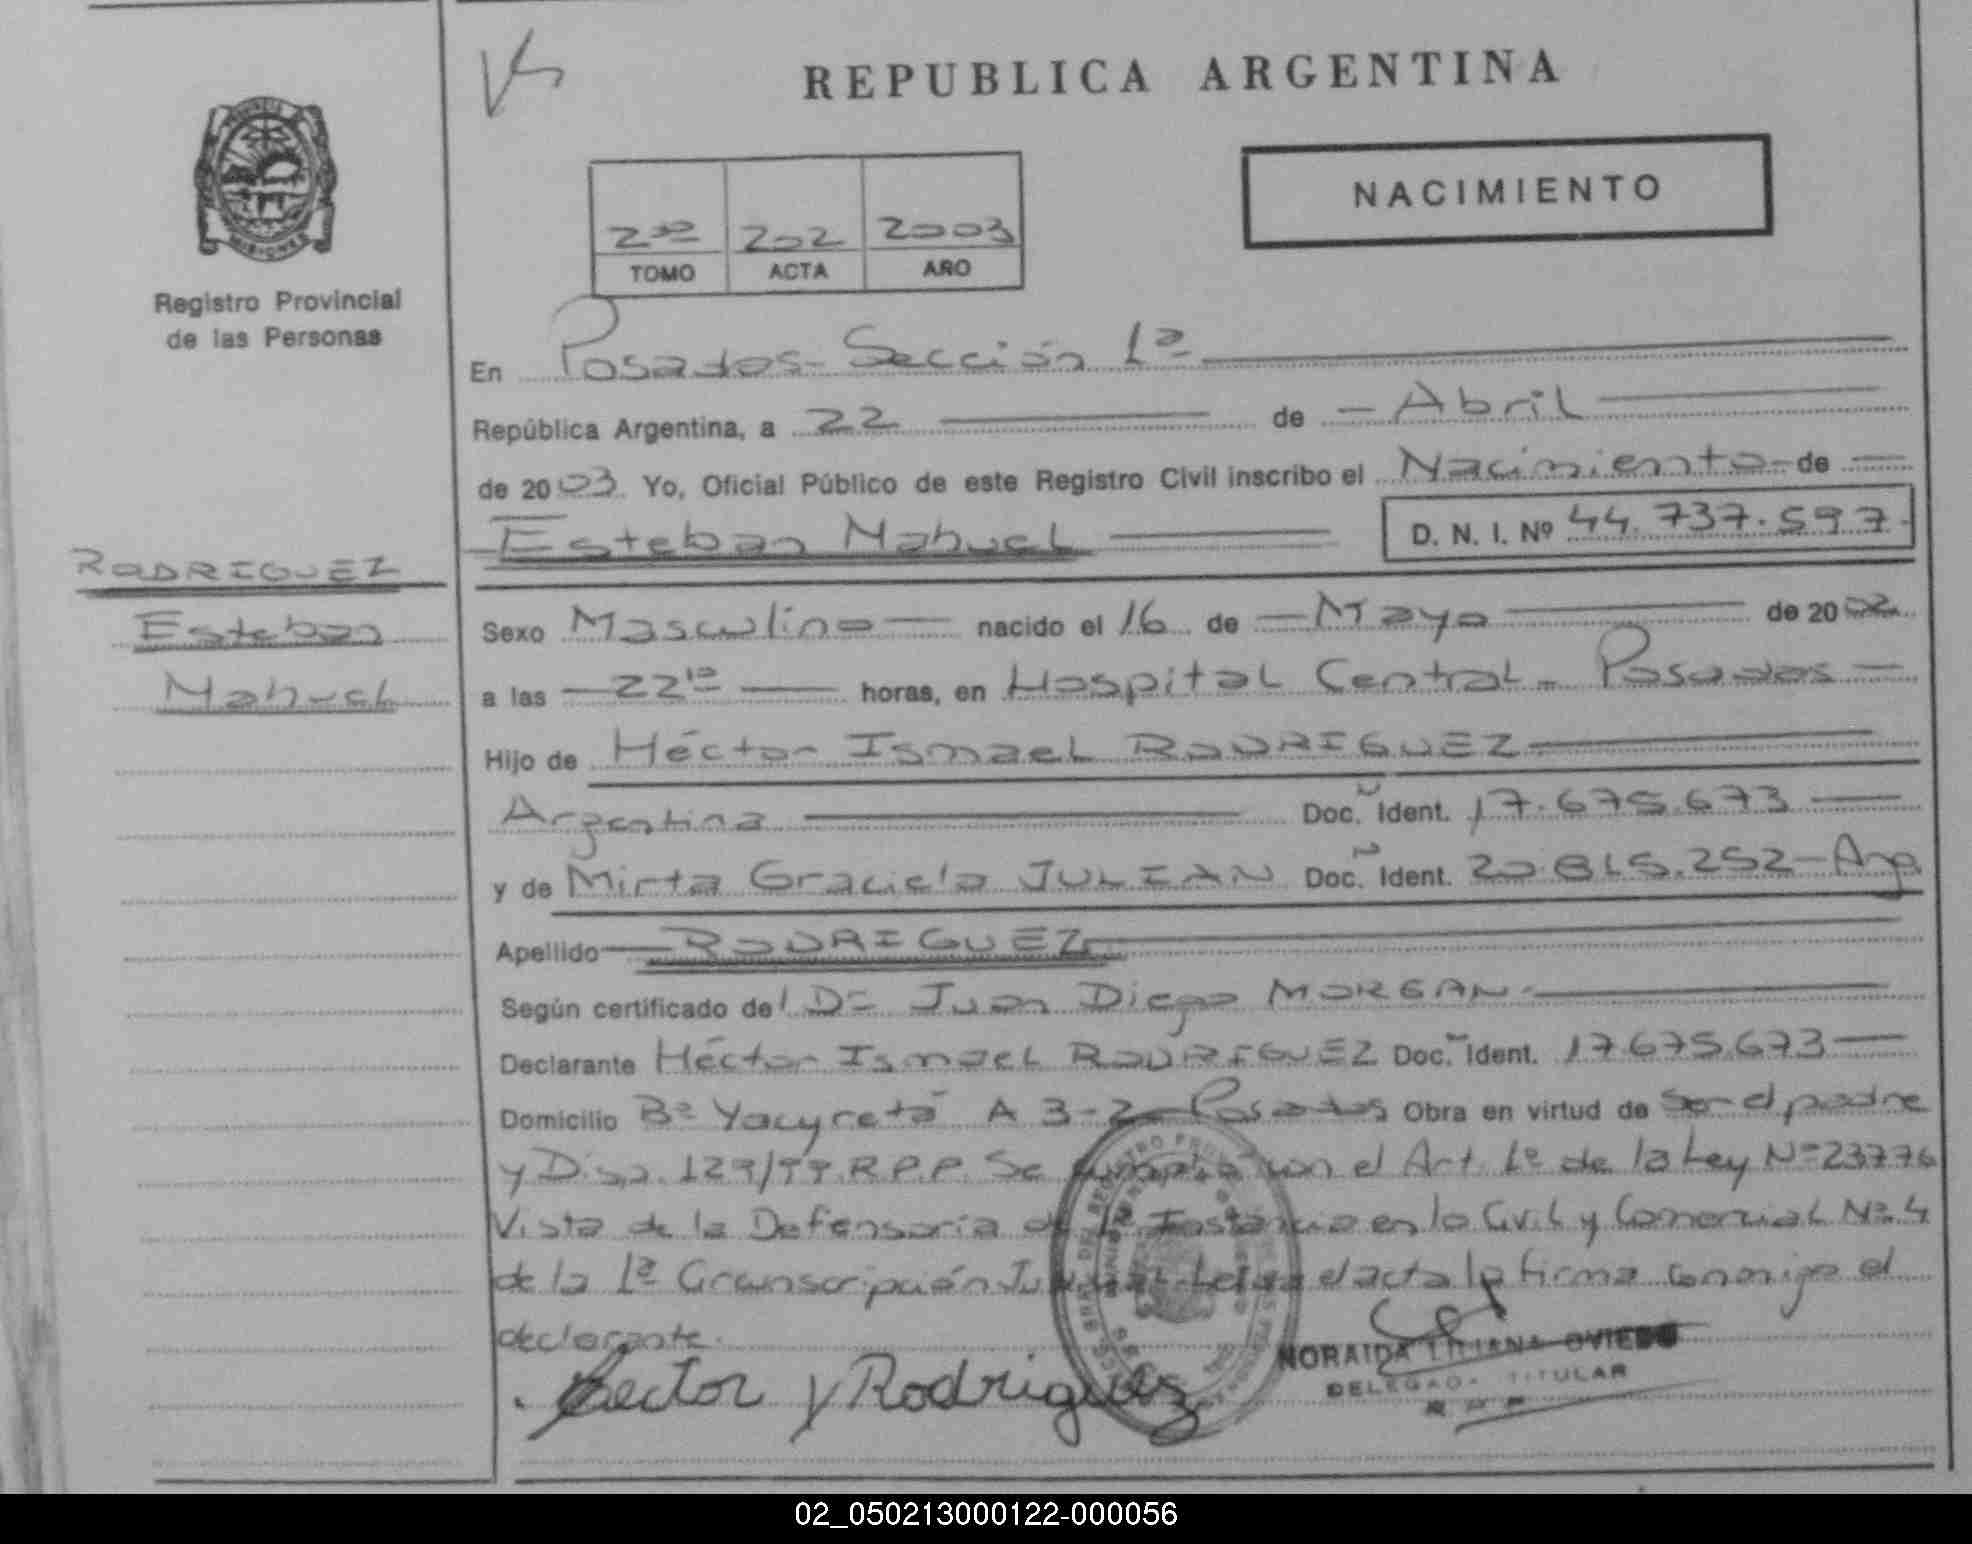 REPUBLICA ARGENTINA
NACIMIENTO
2do 202 2003
TOMO ACTA AÑO
Registro Provincial
de las Personas
En Posadas- Sección 1ª
República Argentina, a 22 de Abril
de 2003 Yo, Oficial Público de este Registro Civil inscribo el Nacimiento de
Esteban Nahuel D. N. I. Nº 44.737.597
RODRIGUEZ
Esteban
Nahuel
Sexo Masculino nacido el 16 de Mayo de 2002
a las 22 horas, en Hospital Central - Posadas
Hijo de Héctor Ismael RODRIGUEZ
Argentina Doc. Ident. 17.675.673
y de Mirta Graciela JULIAN Doc. Ident. 20.815.252 - Arg.
Apellido RODRIGUEZ
Según certificado del Dr Juan Diego MOREGAN
Declarante Héctor Ismael RODRIGUEZ Doc. Ident. 17.675.673
Domicilio Bº Yacyretá A 3-2 Posadas Obra en virtud de ser el padre
y Disp. 129/99. R.P.P. Se cumplió con el Art. 1º de la Ley Nº 23776
Vista de la Defensoría de 1ª Instancia en lo Civil y Comercial Nº 4
de la 1ª Circunscripción Judicial Leída el acta la firma conmigo el
declarante.
Hector Y Rodriguez
NORAIDA LILIANA OVIEDO
DELEGADA TITULAR
R P P
02_050213000122-000056